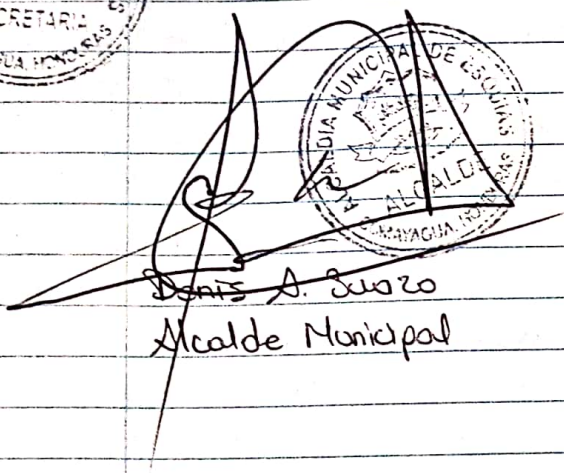 SECRETARIA
HONDURAS
ALCALDIA MUNICIPAL DE ESQUIAS
ALCALDE
COMAYAGUA, HONDURAS
Denis A. Suazo
Alcalde Municipal